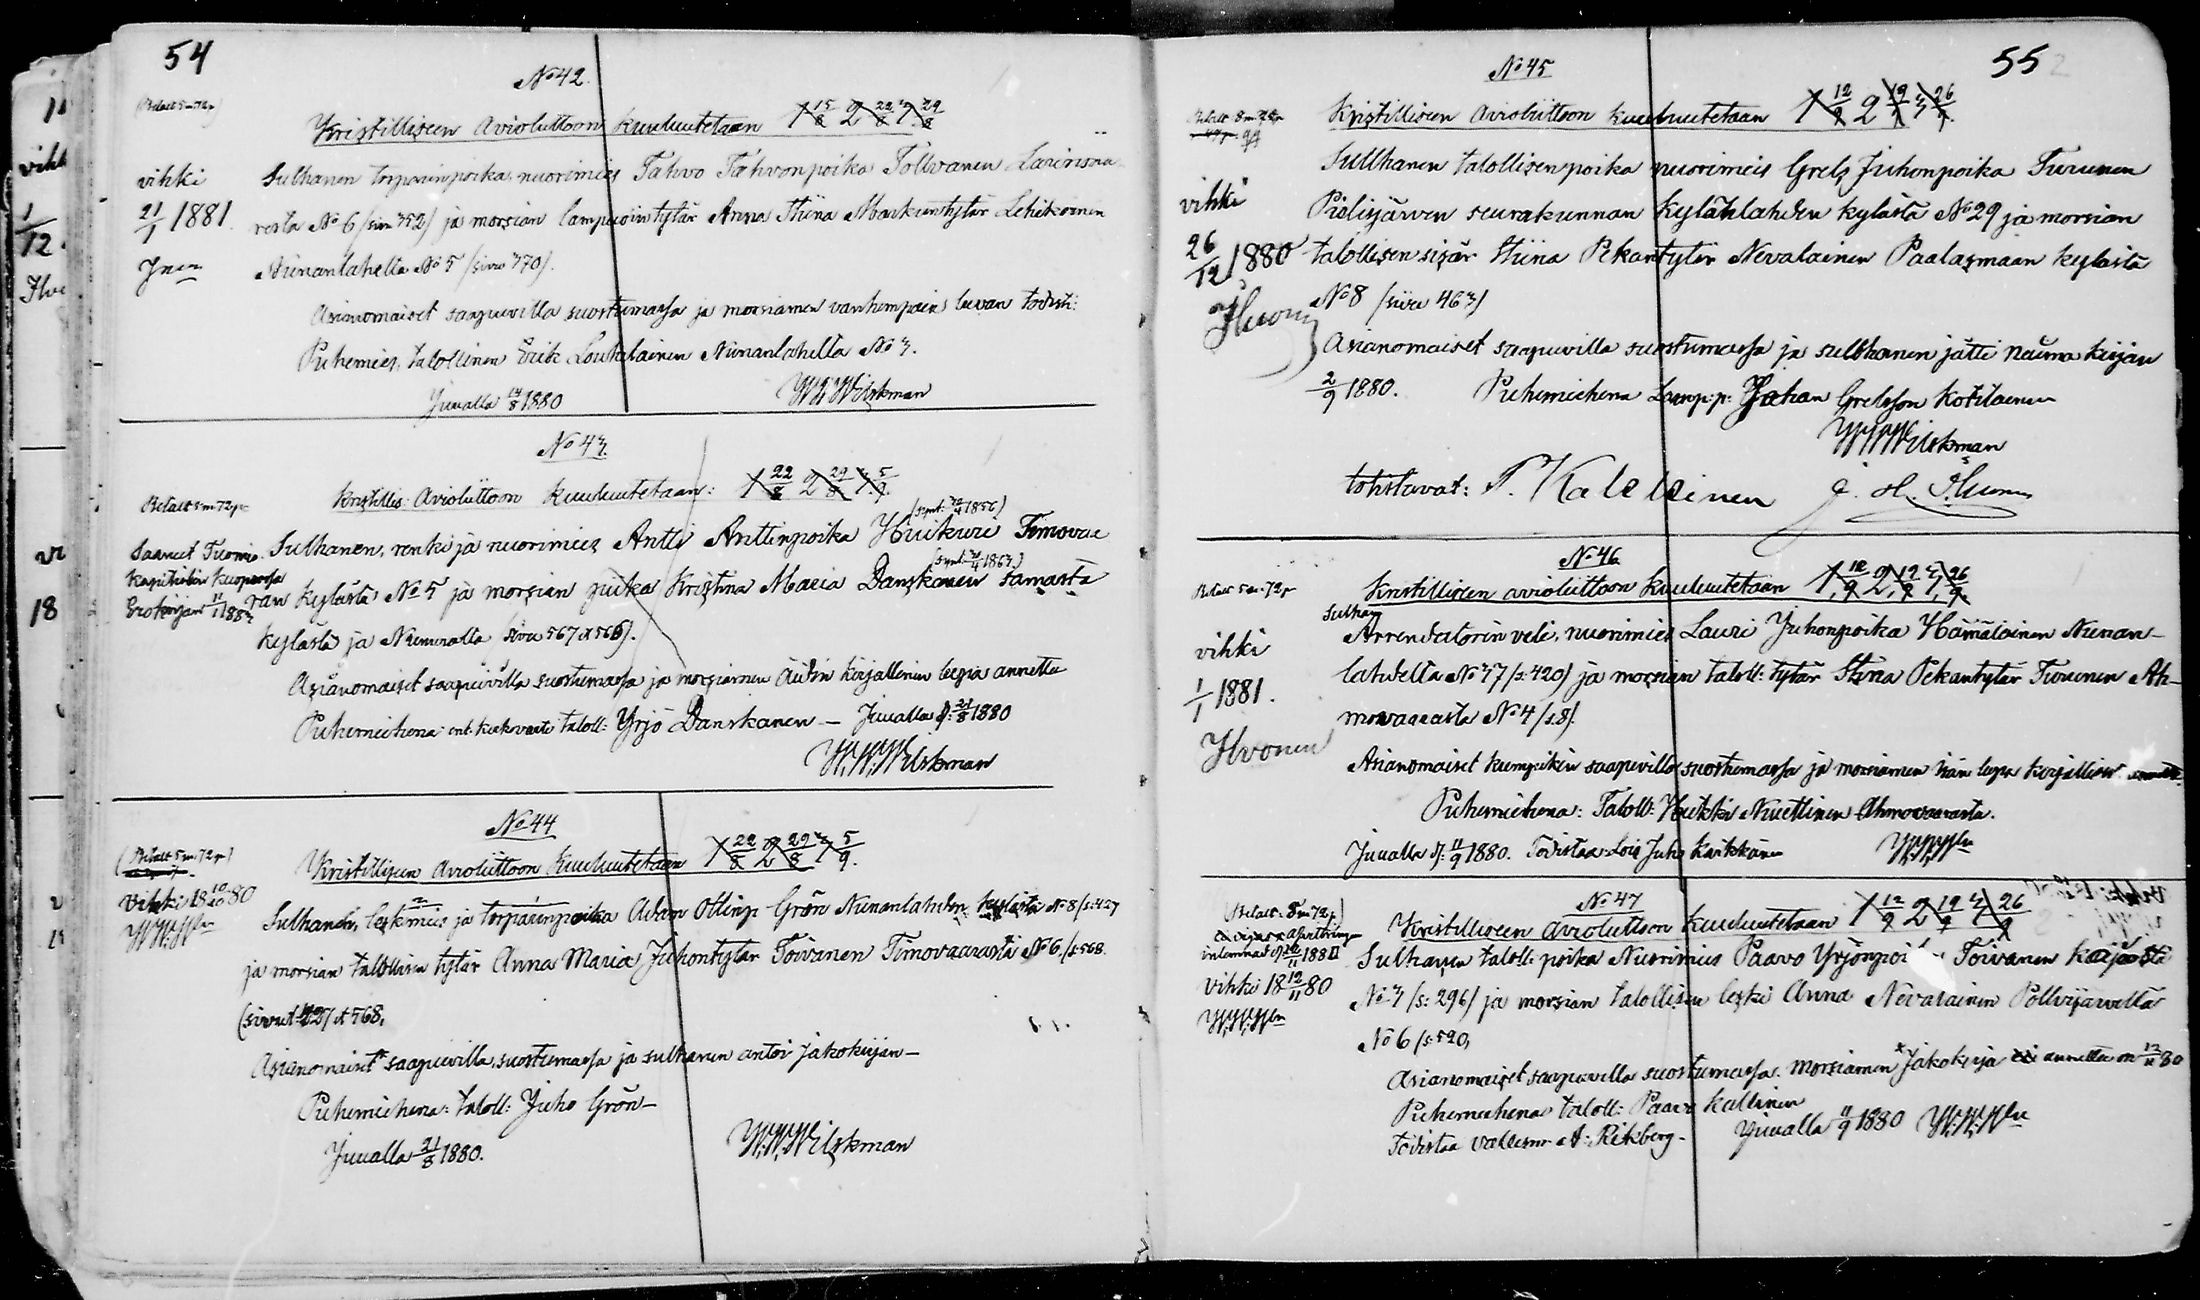 54
No 42.
(Betalt 5 m 72 p)
Kristilliseen avioliittoon kuulutetaan 1 15/8 2 22/8 3 29/8
vihki
21/1 1881.
Sulhanen torparinpoika, nuorimies Tahvo Tahvonpoika Tollvanen Larinsaa-
resta No 6 (sivu 352) ja morsian lampuointytär Anna Stiina Markuntytär Lehikoinen
Niinanlahelta No 5 (sivu 370).
Asianomaiset saapuvilla suostumassa ja morsiamen vanhempain luvan todisti
Puhemies, talollinen Erik Loukalainen Niinanlahelta No 3.
Juualla 14/8 1880
W. W. Wilskman
No 43.
Betalt 5 m 72 p
Kristillis: Avioliittoon kuulutetaan: 1 22/8 2 29/8 3 5/9
Saaneet Tuomio-
kapitulin Kuopiossa
Erokirjan 11/1 1883
Sulhanen, renki ja nuorimies Antti Anttinpoika Huikuri Timovaa
ran kylästä No 5 ja morsian piika Kristina Maria Danskanen samasta
kylästä ja Numeralta (sivu 567 et 566).
Asianomaiset saapuvilla suostumassa ja morsiamen äidin kirjallinen lupa annettu
Puhemiehenä ent. kirkvärti taloll: Yrjö Danskanen - Juualla d: 21/8 1880
W. W. Wilskman
No 44
(Betalt 5 m 72 p)
Kristilliseen Avioliittoon kuulutetaan 1 22/8 2 29/8 3 5/9.
Vihki 18 10/10 80
W. W. Wln
Sulhanen, leskimies ja torparinpoika Adam Ollinp. Grön Niinanlahden kylästä No 8 (s: 427
ja morsian talollisen tytär Anna Maria Juhontytär Toivanen Timovaarasta No 6. (s 568.
(sivut 427 et 568,
Asianomaiset saapuvilla, suostumassa ja sulhanen antoi Jakokirjan -
Puhemiehenä: taloll: Juho Grön -
Juualla 21/8 1880.
W. W. Wilskman
55
No 45
Betalt 8 m 72 p
Kristilliseen avioliittoon kuulutetaan 1 12/9 2 19/9 3 26/9
vihki
26/12 1880
Sullhanen talollisenpoika nuorimies Grels Juhonpoika Turunen
Pielisjärven seurakunnan Kylänlahden kylästä No 29 ja morsian
talollisen sisär Stiina Pekantytär Nevalainen Paalasmaan kylästä
No 8 (sivu 463)
Asianomaiset saapuvilla suostumassa ja sullhanen jätti naima kirjan
2/9 1880.
Puhemiehenä Lamp:p: Johan Grelsson Kotilainen
W W Wilskman
tohistavat:
No 46
Betalt 5 m 72 p
Kristilliseen avioliittoon kuulutetaan 1 12/9 2 19/9 3 26/9
Sulhan
vihki
1/1 1881.
Ilvonen
Arrendatorin veli, nuorimies Lauri Juhonpoika Hämäläinen Niinan-
lahdella No 37 (s: 420) ja morsian taloll: tytär Stiina Pekantytär Turunen Ah-
movaarasta No 4 (s.8).
Asianomaiset kumpikin saapuvilla suostumassa ja morsiamen isän lupa kirjallisest.
Puhemiehenä: Taloll: Heikki Nuutinen Ahmovaarasta.
Juualla d: 11/9 1880. Todistaa Lois Juho Karkkänen
W. W. Wln
No 47
(Betalt: 5 m 72 p)
Kristilliseen avioliittoon kuulutetaan 1 12/9 2 19/9 3 26/9
vihki 18 12/11 80
W. W. Wln
Sulhanen taloll: poika Nuorimies Paavo Yrjönpoi Toivanen Karjasta
No 3 (s: 296) ja morsian talollisen leski Anna Nevalainen Pollvijärveltä
No 6 (s: 520,
Asianomaiset saapuvilla suostumassa. Morsiamen Jakokirja annettu on 12/11 80
Puhemiehenä taloll: Paavo Kallinen
Todistaa vallesm. A: Rikberg -
Juualla 11/9 1880 W. W. Wln